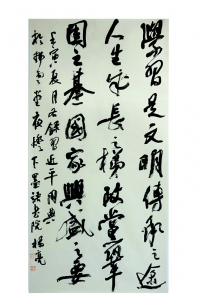 學習是文明傳承之途
人生成長之梯政黨鞏
固之基國家興盛之要
壬寅夏月占録習近平用典
於拂雲堂夜燈下墨語書院楊亮